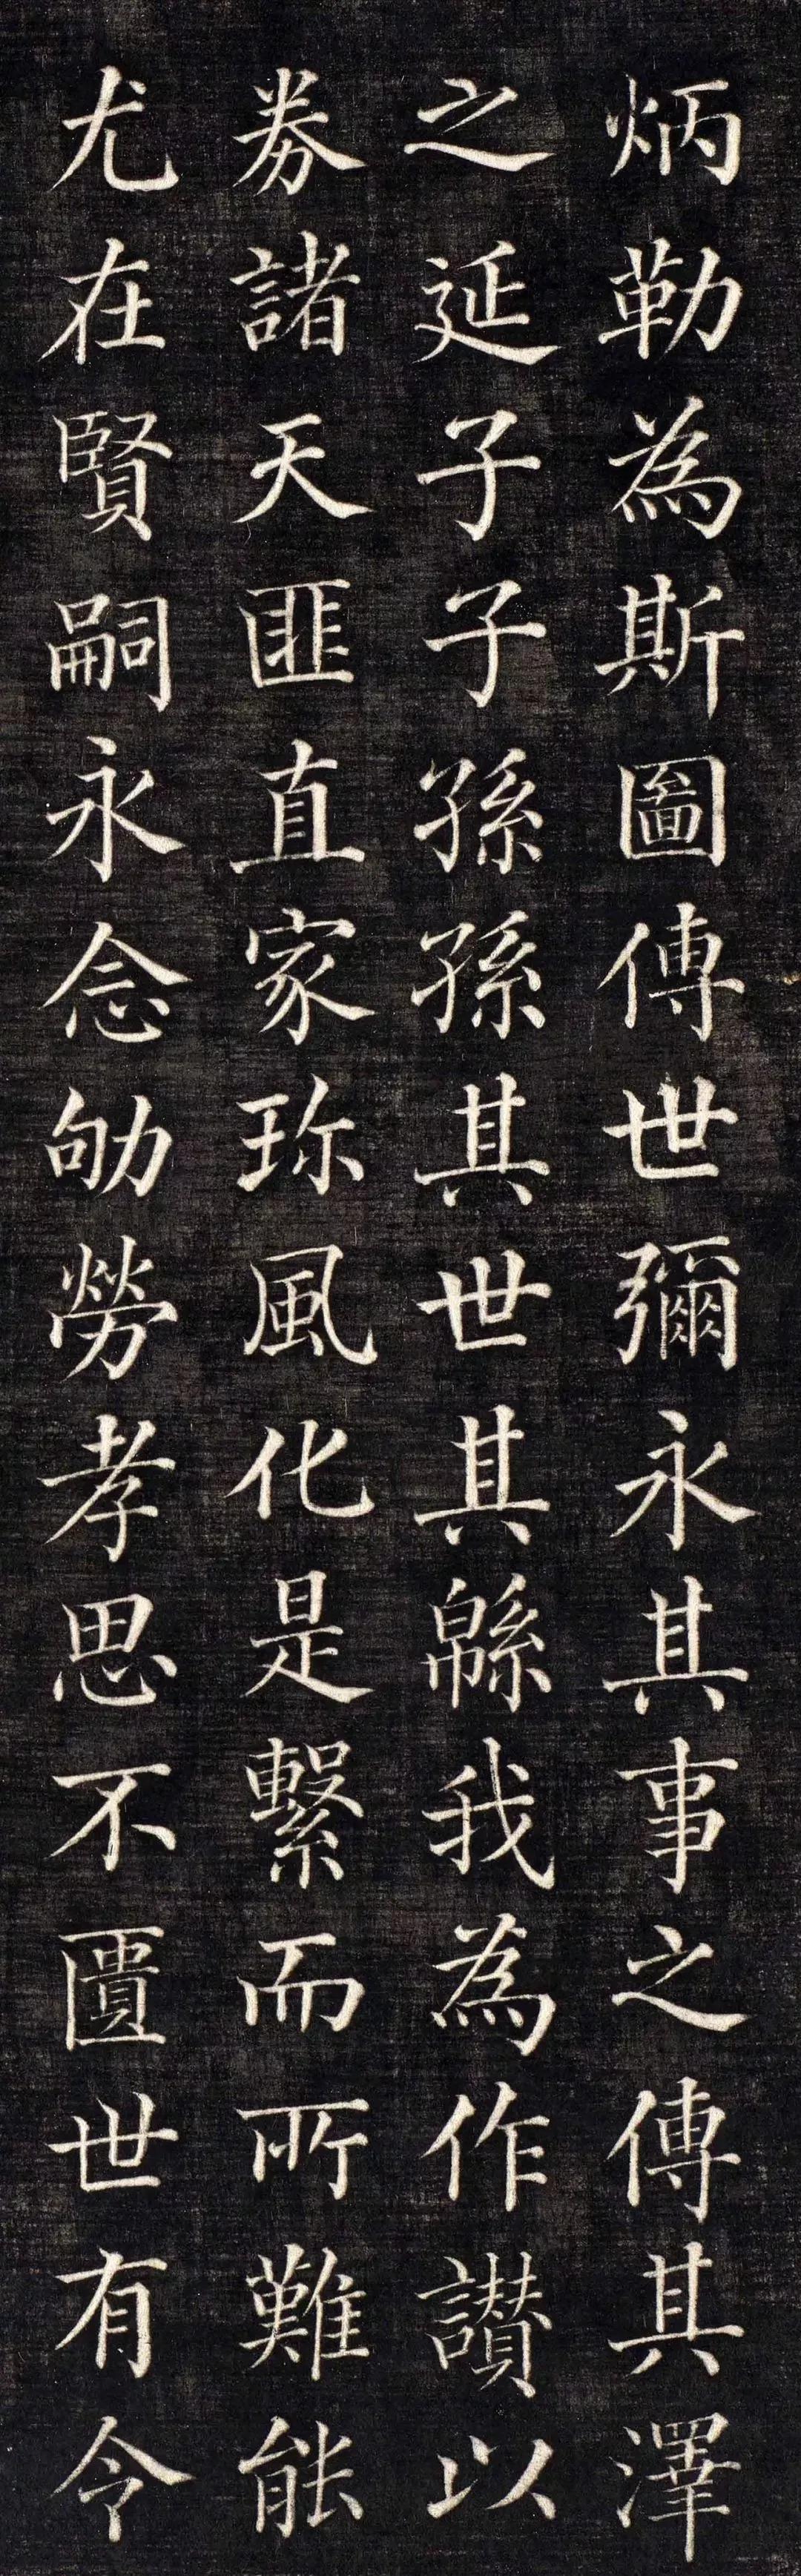 炳勒為斯圖傳世彌永其事之傳其澤
之延子子孫孫其世其緜我為作讃以
劵諸天匪直家珎風化是繫而所難能
尤在賢嗣永念劬勞孝思不匱世有令